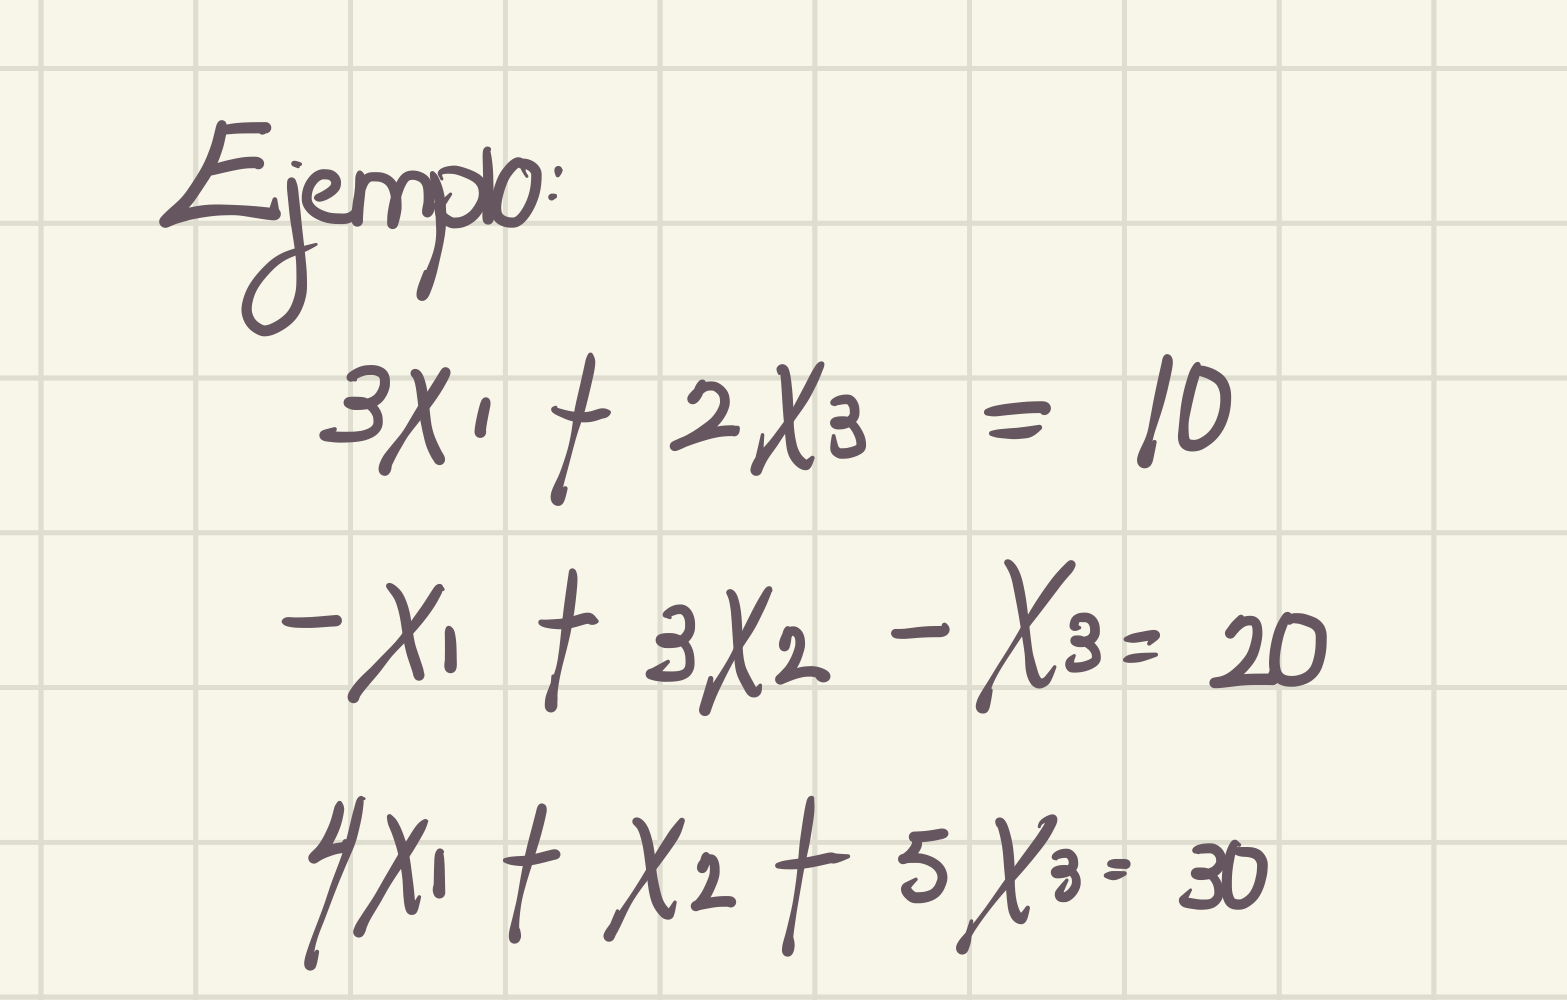 Ejemplo:
3X₁ + 2X₃ = 10
-X₁ + 3X₂ - X₃ = 20
4X₁ + X₂ + 5X₃ = 30